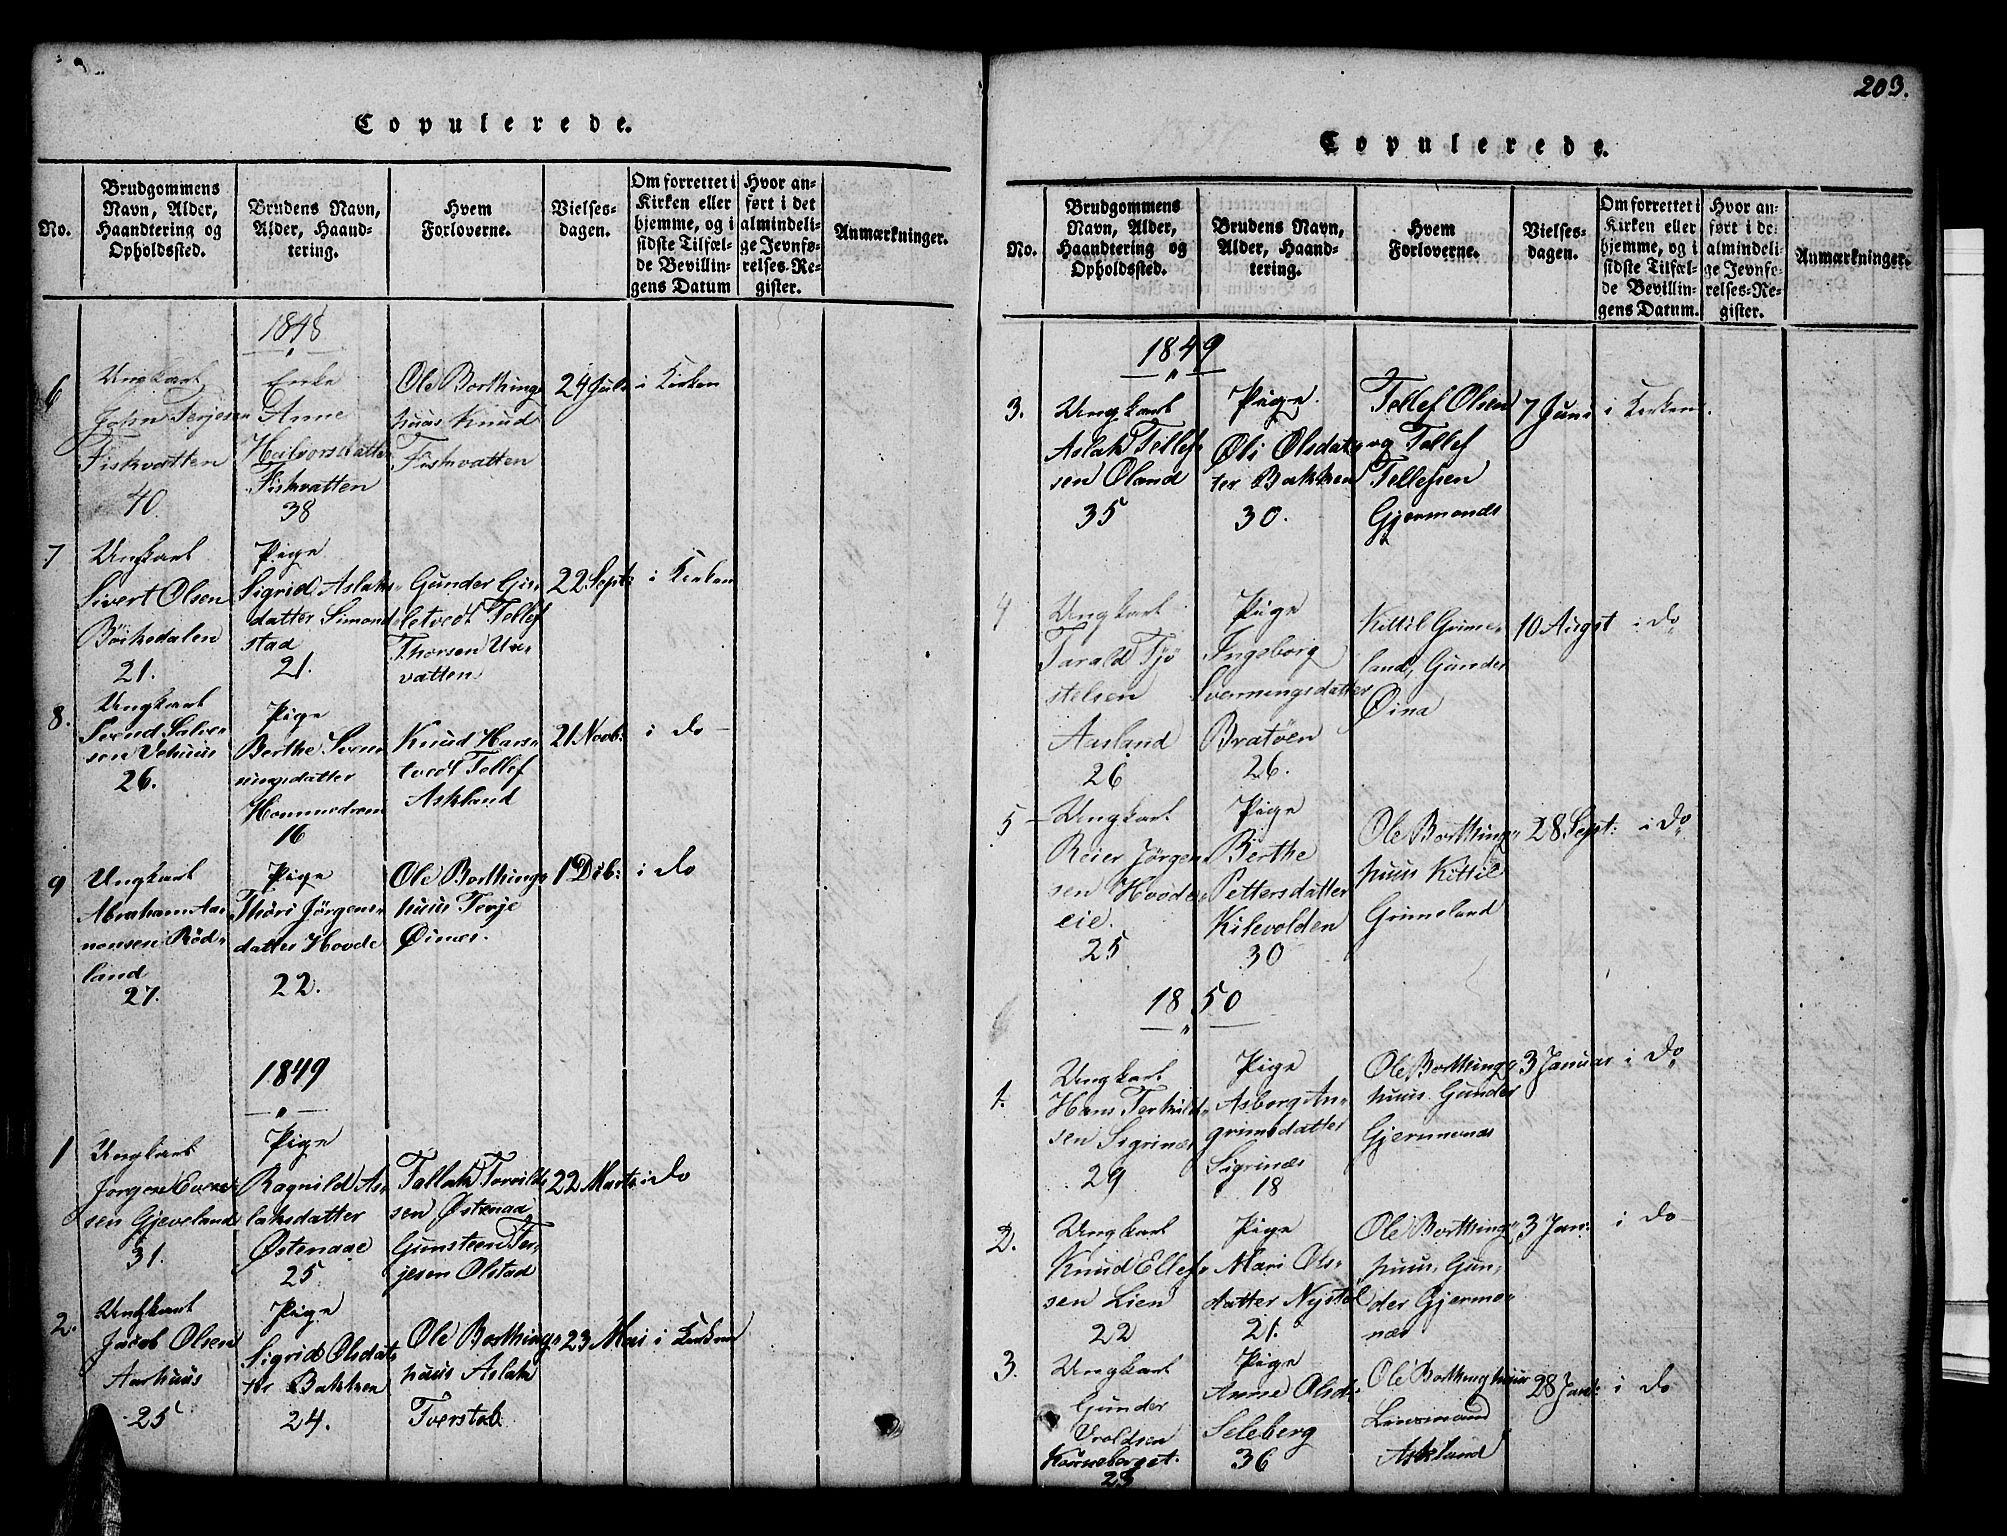 Copulerede.
No.
Brudgommens
Navn, Alder,
Haandtering og
Opholdssted.
Brudens Navn,
Alder, Haand-
tering.
Hvem
Forloverne.
Vielses-
dagen.
Om forrettet i
Kirken eller
hjemme, og i
sidste Tilfæl-
de Bevillin-
gens Datum
Hvor an-
ført i det
almindeli-
ge Jevnfø-
relses-Re-
gister.
Anmærkninger.
1848
6
Ungkarl
John Terjesen
Fiskvatten
40
Enke
Anne
Halvorsdatter
Fiskvatten
38
Ole Borthing-
huus Knud
Fiskvatten
24 Juli
i Kirken
7
Ungkarl
Sivert Olsen
Birkedalen
21.
Pige
Sigrid Aslaks-
datter Simond-
stad
21.
Gunder Gis-
letvedt Tellef
Thorsen Ur-
vatten
22 Sept:
i Kirken
8.
Ungkarl
Svend Salve-
sen Vehuus
26.
Pige
Berthe Svenn-
ungsdatter
Hommedram
16
Knud Hars-
tvedt Tellef
Askland
21 Novb:
i do
9
Ungkarl
Abraham Aa-
nonsen Röd-
land
27.
Pige
Thöri Jörgens-
datter Hovde
22.
Ole Borthing-
huus Terje
Öinæs.
1 Dcb:
i do
1849
1
Ungkarl
Jörgen Evens-
sen Gjeveland
31.
Pige
Ragnild As-
laksdatter
Östenaae
25
Tallak Torvilds-
sen Östenaa
Gunsteen Ter-
jesen Olstad
22 Marts
i do
2.
Ungkarl
Jacob Olsen
Aarhuus
25
Pige
Sigrid Olsdat-
ter Bakken
24.
Ole Borthing-
huus Aslak
Tverstøl
23 Mai
i Kirken
203.
Copulerede.
No.
Brudgommens
Navn, Alder,
Haandtering og
Opholdssted.
Brudens Navn,
Alder, Haand-
tering.
Hvem
Forloverne.
Vielses-
dagen.
Om forrettet i
Kirken eller
hjemme, og i
sidste Tilfæl-
de Bevillin-
gens Datum.
Hvor an-
ført i de
almindeli-
ge Jevnfø-
relses-Re-
gister.
Anmærkninger.
1849
3.
Ungkarl
Aslak Tellef-
sen Öland
35
Pige.
Öli Olsdat-
ter Bakken
30.
Tellef Olsen
og Tellef
Tellefsen
Gjermonds
7 Juni
i Kirken.
4
Ungkarl
Tarald Tjö
stelsen
Aasland
26
Pige
Ingeborg
Svenningsdatter
Bratöen
26.
Kittil Grime-
land, Gunder
Öina
10 Augst
i do
5
Ungkarl
Reier Jörgen-
sen Hovde-
eie.
25
Pige
Berthe
Pettersdatter
Kilevolden
30
Ole Borthing-
huus Kittil
Grimeland
28 Sept:
i do
1850
1.
Ungkarl
Hans Terkild-
sen Sigrinæs
29
Pige
Asborg An-
grimsdatter
Sigrinæs
18
Ole Borthing-
huus. Gunder
Gjermenæs
3 Januar
i do
2.
Ungkarl
Knud Ellef-
sen Lien
22
Pige
Mari Ols-
datter Nystöl
21.
Ole Borthing-
huus, Gun-
der Gjerme-
næs
3 Jan:
i do
3.
Ungkarl
Gunder
Vroldsen
Kørneberget.
23
Pige
Anne Olsd:
Seleberg
36
Ole Borthinghuus
Linsmand
Askland
28 Jan:
i do